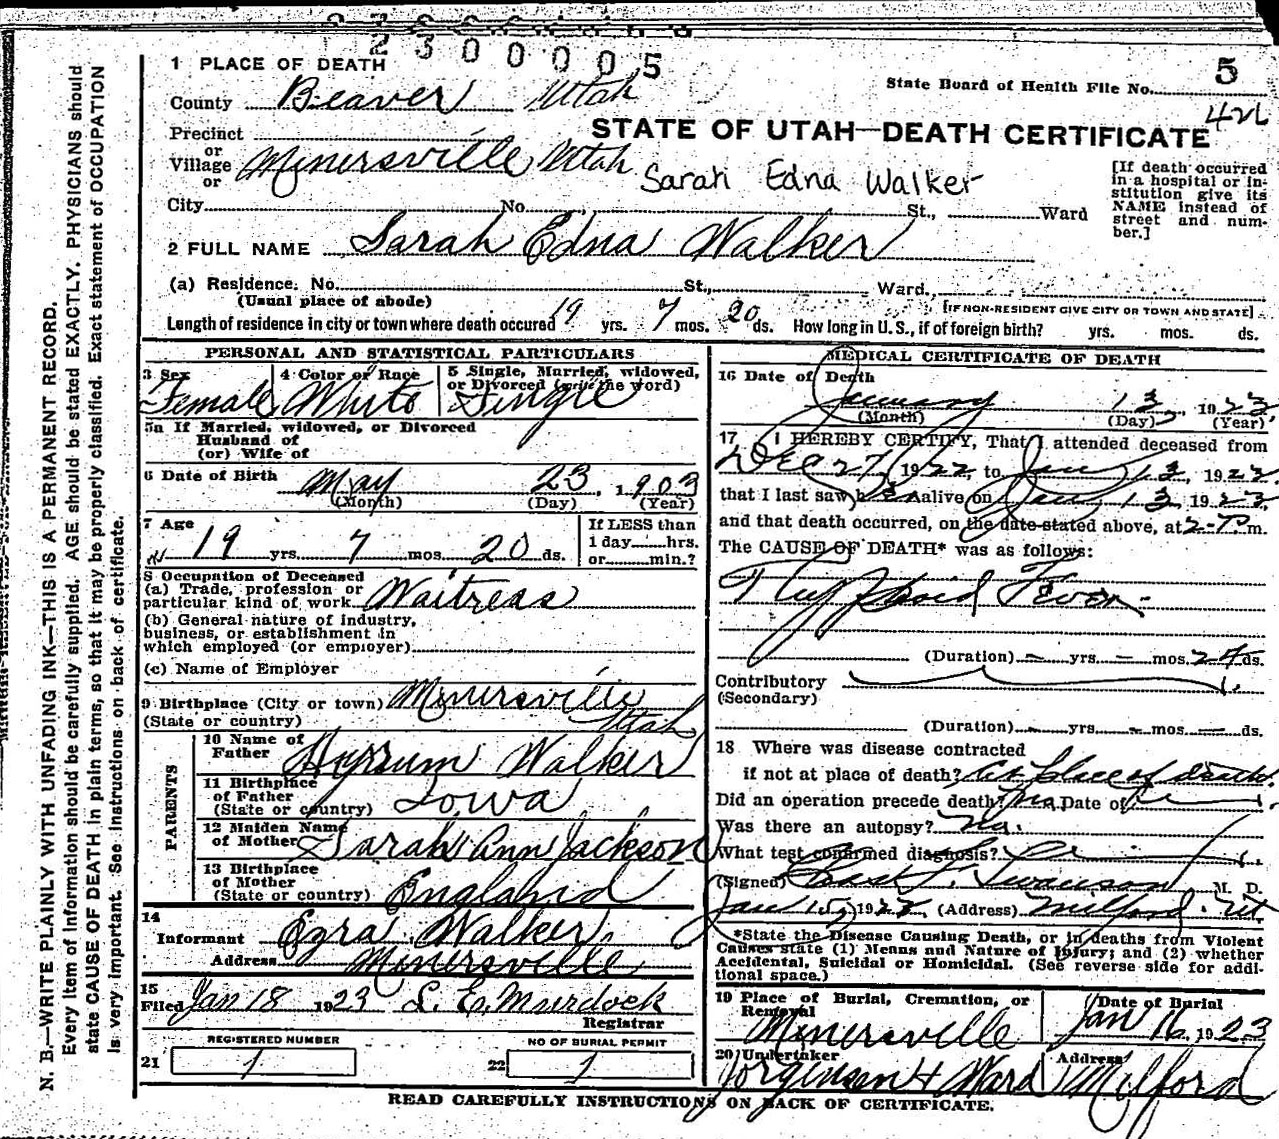 2300005
1 PLACE OF DEATH
State Board of Health File No. 5
426
County Beaver Utah
STATE OF UTAH—DEATH CERTIFICATE
Precinct
or
Village Minersville Utah
or
Sarah Edna Walker
[If death occurred in a hospital or institution give its NAME instead of street and number.]
City No. St., Ward
2 FULL NAME Sarah Edna Walker
(a) Residence. No. St., Ward,
(Usual place of abode) [IF NON-RESIDENT GIVE CITY OR TOWN AND STATE]
Length of residence in city or town where death occured 19 yrs. 7 mos. 20 ds. How long in U. S., if of foreign birth? yrs. mos. ds.
PERSONAL AND STATISTICAL PARTICULARS
3 Sex 4 Color or Race 5 Single, Married, widowed, or Divorced (write the word)
Female White Single
5a If Married, widowed, or Divorced
Husband of
(or) Wife of
6 Date of Birth May 23, 1903
(Month) (Day) (Year)
7 Age If LESS than
1 day......hrs.
or.........min.?
19 yrs. 7 mos. 20 ds.
8 Occupation of Deceased
(a) Trade, profession or
particular kind of work Waitress
(b) General nature of industry,
business, or establishment in
which employed (or employer)
(c) Name of Employer
9 Birthplace (City or town) Minersville
(State or country) Utah
PARENTS
10 Name of
Father Hyrum Walker
11 Birthplace
of Father
(State or country) Iowa
12 Maiden Name
of Mother Sarah Ann Jackson
13 Birthplace
of Mother
(State or country) England
14
Informant Ezra Walker
Address Minersville
15
Filed Jan 18 1923 L. E. Murdock
Registrar
REGISTERED NUMBER NO OF BURIAL PERMIT
21 1 22 1
MEDICAL CERTIFICATE OF DEATH
16 Date of Death
January 13, 1923
(Month) (Day) (Year)
17 I HEREBY CERTIFY, That I attended deceased from
Dec 27 1922 to Jan 13, 1923
that I last saw her alive on Jan 13, 1923,
and that death occurred, on the date stated above, at 2 P. m.
The CAUSE OF DEATH* was as follows:
Typhoid Fever
(Duration) – yrs. – mos. 24 ds.
Contributory
(Secondary)
(Duration) – yrs. – mos. – ds.
18 Where was disease contracted
if not at place of death? At place of death
Did an operation precede death? No. Date of
Was there an autopsy? No.
What test confirmed diagnosis?
(Signed) Swanson, M. D.
Jan 15, 1923 (Address) Milford Ut
*State the Disease Causing Death, or in deaths from Violent
Causes state (1) Means and Nature of Injury; and (2) whether
Accidental, Suicidal or Homicidal. (See reverse side for addi-
tional space.)
19 Place of Burial, Cremation, or Date of Burial
Removal
Minersville Jan 16, 1923
20 Undertaker Address
Jorgensen & Ward Milford
READ CAREFULLY INSTRUCTIONS ON BACK OF CERTIFICATE.
N. B.—WRITE PLAINLY WITH UNFADING INK—THIS IS A PERMANENT RECORD.
Every item of information should be carefully supplied. AGE should be stated EXACTLY. PHYSICIANS should
state CAUSE OF DEATH in plain terms, so that it may be properly classified. Exact statement of OCCUPATION
is very important. See instructions on back of certificate.